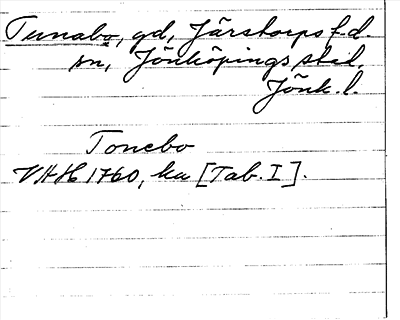 Tunabo, gd, Järstorps f.d.
sn, Jönköpings stad,
Jönk. l.
Tonebo
VHH 1760, ka [Tab. I].